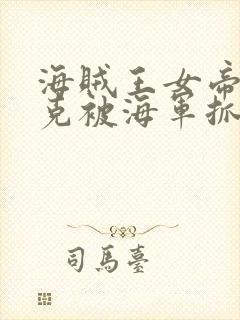 海賊王女帝
克被海軍抓
司馬臺